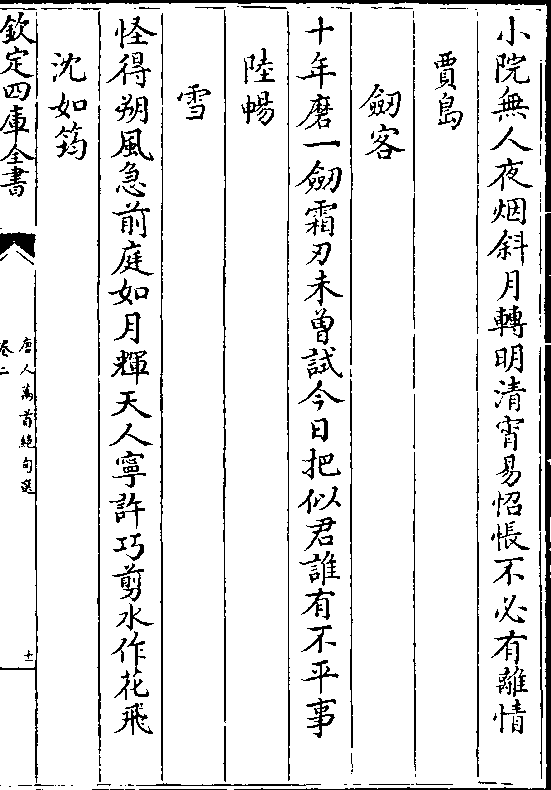 小院無人夜烟斜月轉明清宵易惆悵不必有離情
賈島
劒客
十年磨一劒霜刃未曾試今日把似君誰有不平事
陸暢
雪
怪得朔風急前庭如月輝天人寧許巧剪水作花飛
沈如筠
欽定四庫全書
唐人萬首絶句選
卷二
十一